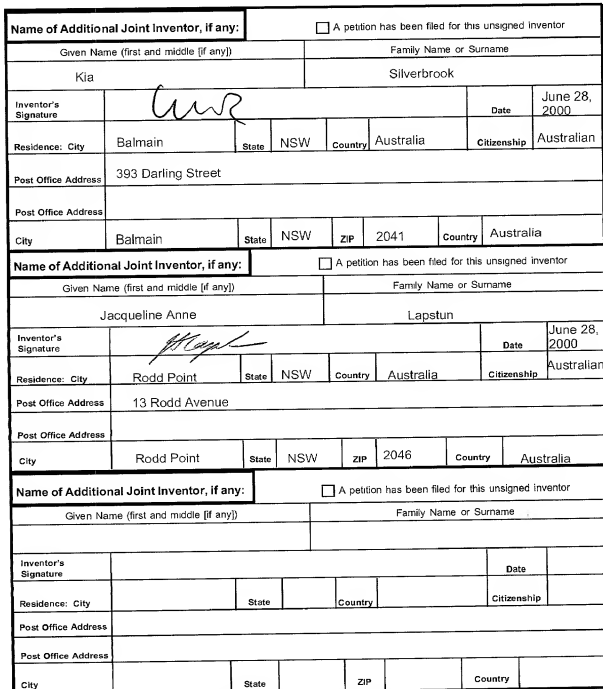 Name of Additional Joint Inventor, if any: A petition has been filed for this unsigned inventor
Given Name (first and middle [if any]) Family Name or Surname
Kia Silverbrook
Inventor's Signature Date June 28, 2000
Residence: City Balmain State NSW Country Australia Citizenship Australian
Post Office Address 393 Darling Street
Post Office Address
City Balmain State NSW ZIP 2041 Country Australia
Name of Additional Joint Inventor, if any: A petition has been filed for this unsigned inventor
Given Name (first and middle [if any]) Family Name or Surname
Jacqueline Anne Lapstun
Inventor's Signature Date June 28, 2000
Residence: City Rodd Point State NSW Country Australia Citizenship Australian
Post Office Address 13 Rodd Avenue
Post Office Address
City Rodd Point State NSW ZIP 2046 Country Australia
Name of Additional Joint Inventor, if any: A petition has been filed for this unsigned inventor
Given Name (first and middle [if any]) Family Name or Surname
Inventor's Signature Date
Residence: City State Country Citizenship
Post Office Address
Post Office Address
City State ZIP Country